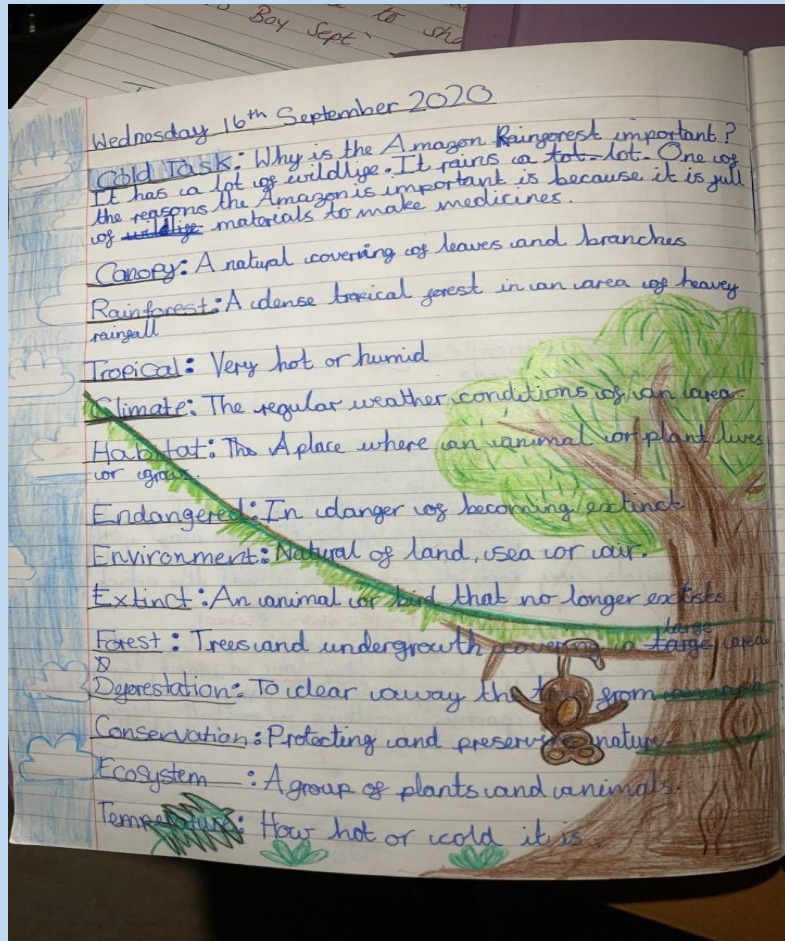 Boy Sept
to sho
Wednesday 16th September 2020
Cold Task: Why is the Amazon Rainforest important?
It has a lot of wildlife. It rains a tot lot. One of
the reasons the Amazon is important is because it is full
of wildlife materials to make medicines.
Canopy: A natural covering of leaves and branches
Rainforest: A dense tropical forest in an area of heavey
rainfall
Tropical: Very hot or humid
Climate: The regular weather conditions of an area.
Habitat: The A place where an animal or plant lives
or grows.
Endangered: In danger of becoming extinct
Environment: Natural of land, sea or air.
Extinct: An animal or bird that no longer exctists
Forest: Trees and undergrowth covering a targe large area
Deforestation: To clear away the from
Conservation: Protecting and preserving nature
Ecosystem: A group of plants and animals.
Temperature: How hot or cold it is